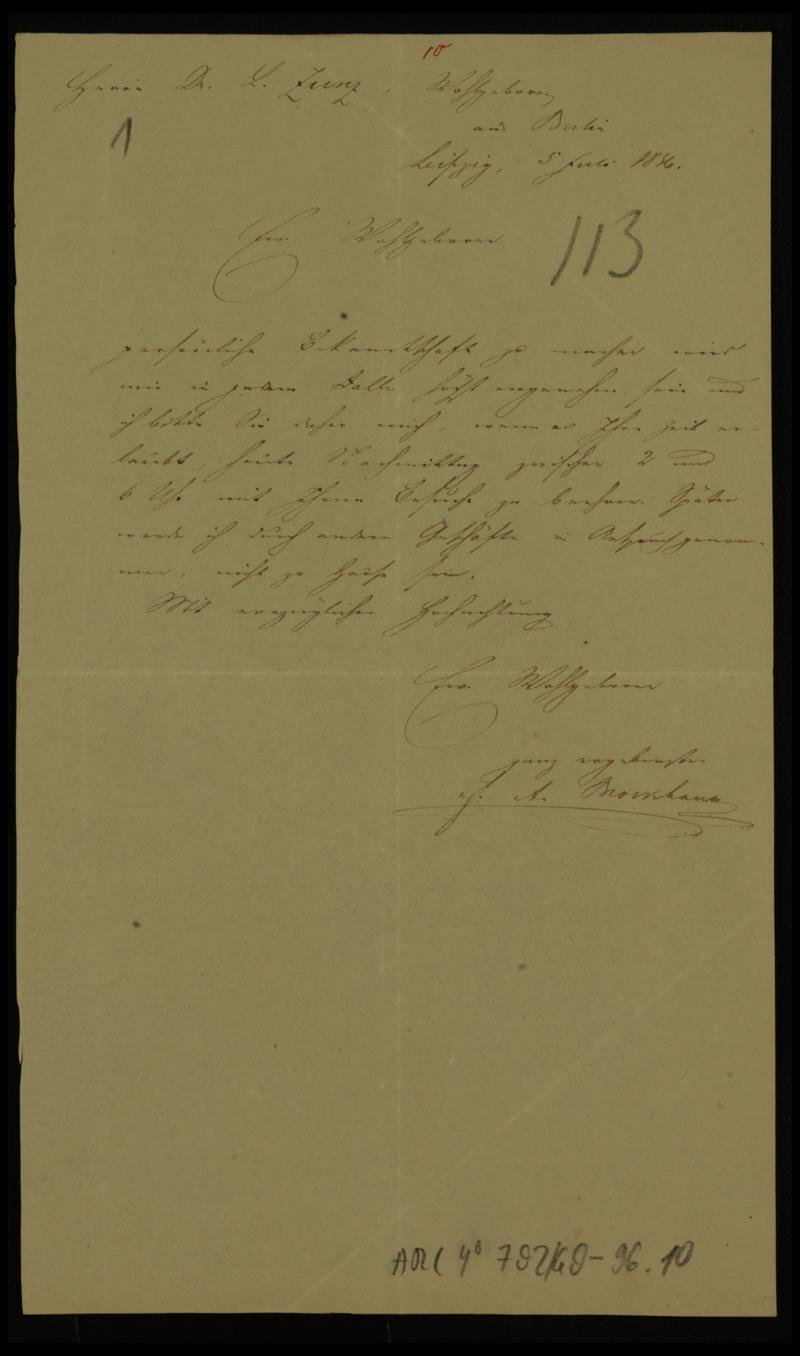 10
Herrn Dr. L. Zunz, Wohlgeboren
aus Berlin
1
Leipzig, 5 Juli
Ew. Wohlgeboren
113
persönliche Bekanntschaft zu machen wird
mir in jedem Falle höchst angenehm sein und
ich bitte Sie daher mich, wenn es Ihre Zeit er-
laubt, heute Nachmittag zwischen 2 und
6 Uhr mit Ihrem Besuche zu beehren. Später
werde ich durch andere Geschäfte in Anspruch genom-
men, nicht zu Hause sein.
Mit vorzüglicher Hochachtung
Ew. Wohlgeboren
ganz ergebenster
A. Brockhaus
ARC 4° 792/